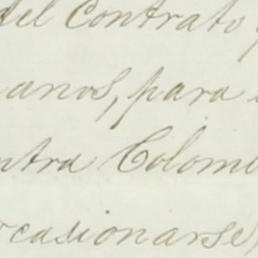 del Contrato
anos, para
ntra Colom
casionarse,